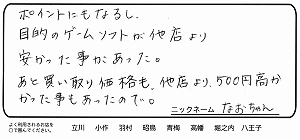 ポイントにもなるし、
目的のゲームソフトが他店より
安かった事があった。
あと買い取り価格も、他店より、500円高か
かった事もあったので。
ニックネーム なおちゃん
よく利用されるお店を
○で囲んでください。 立川 小作 羽村 昭島 青梅 高幡 堀之内 八王子